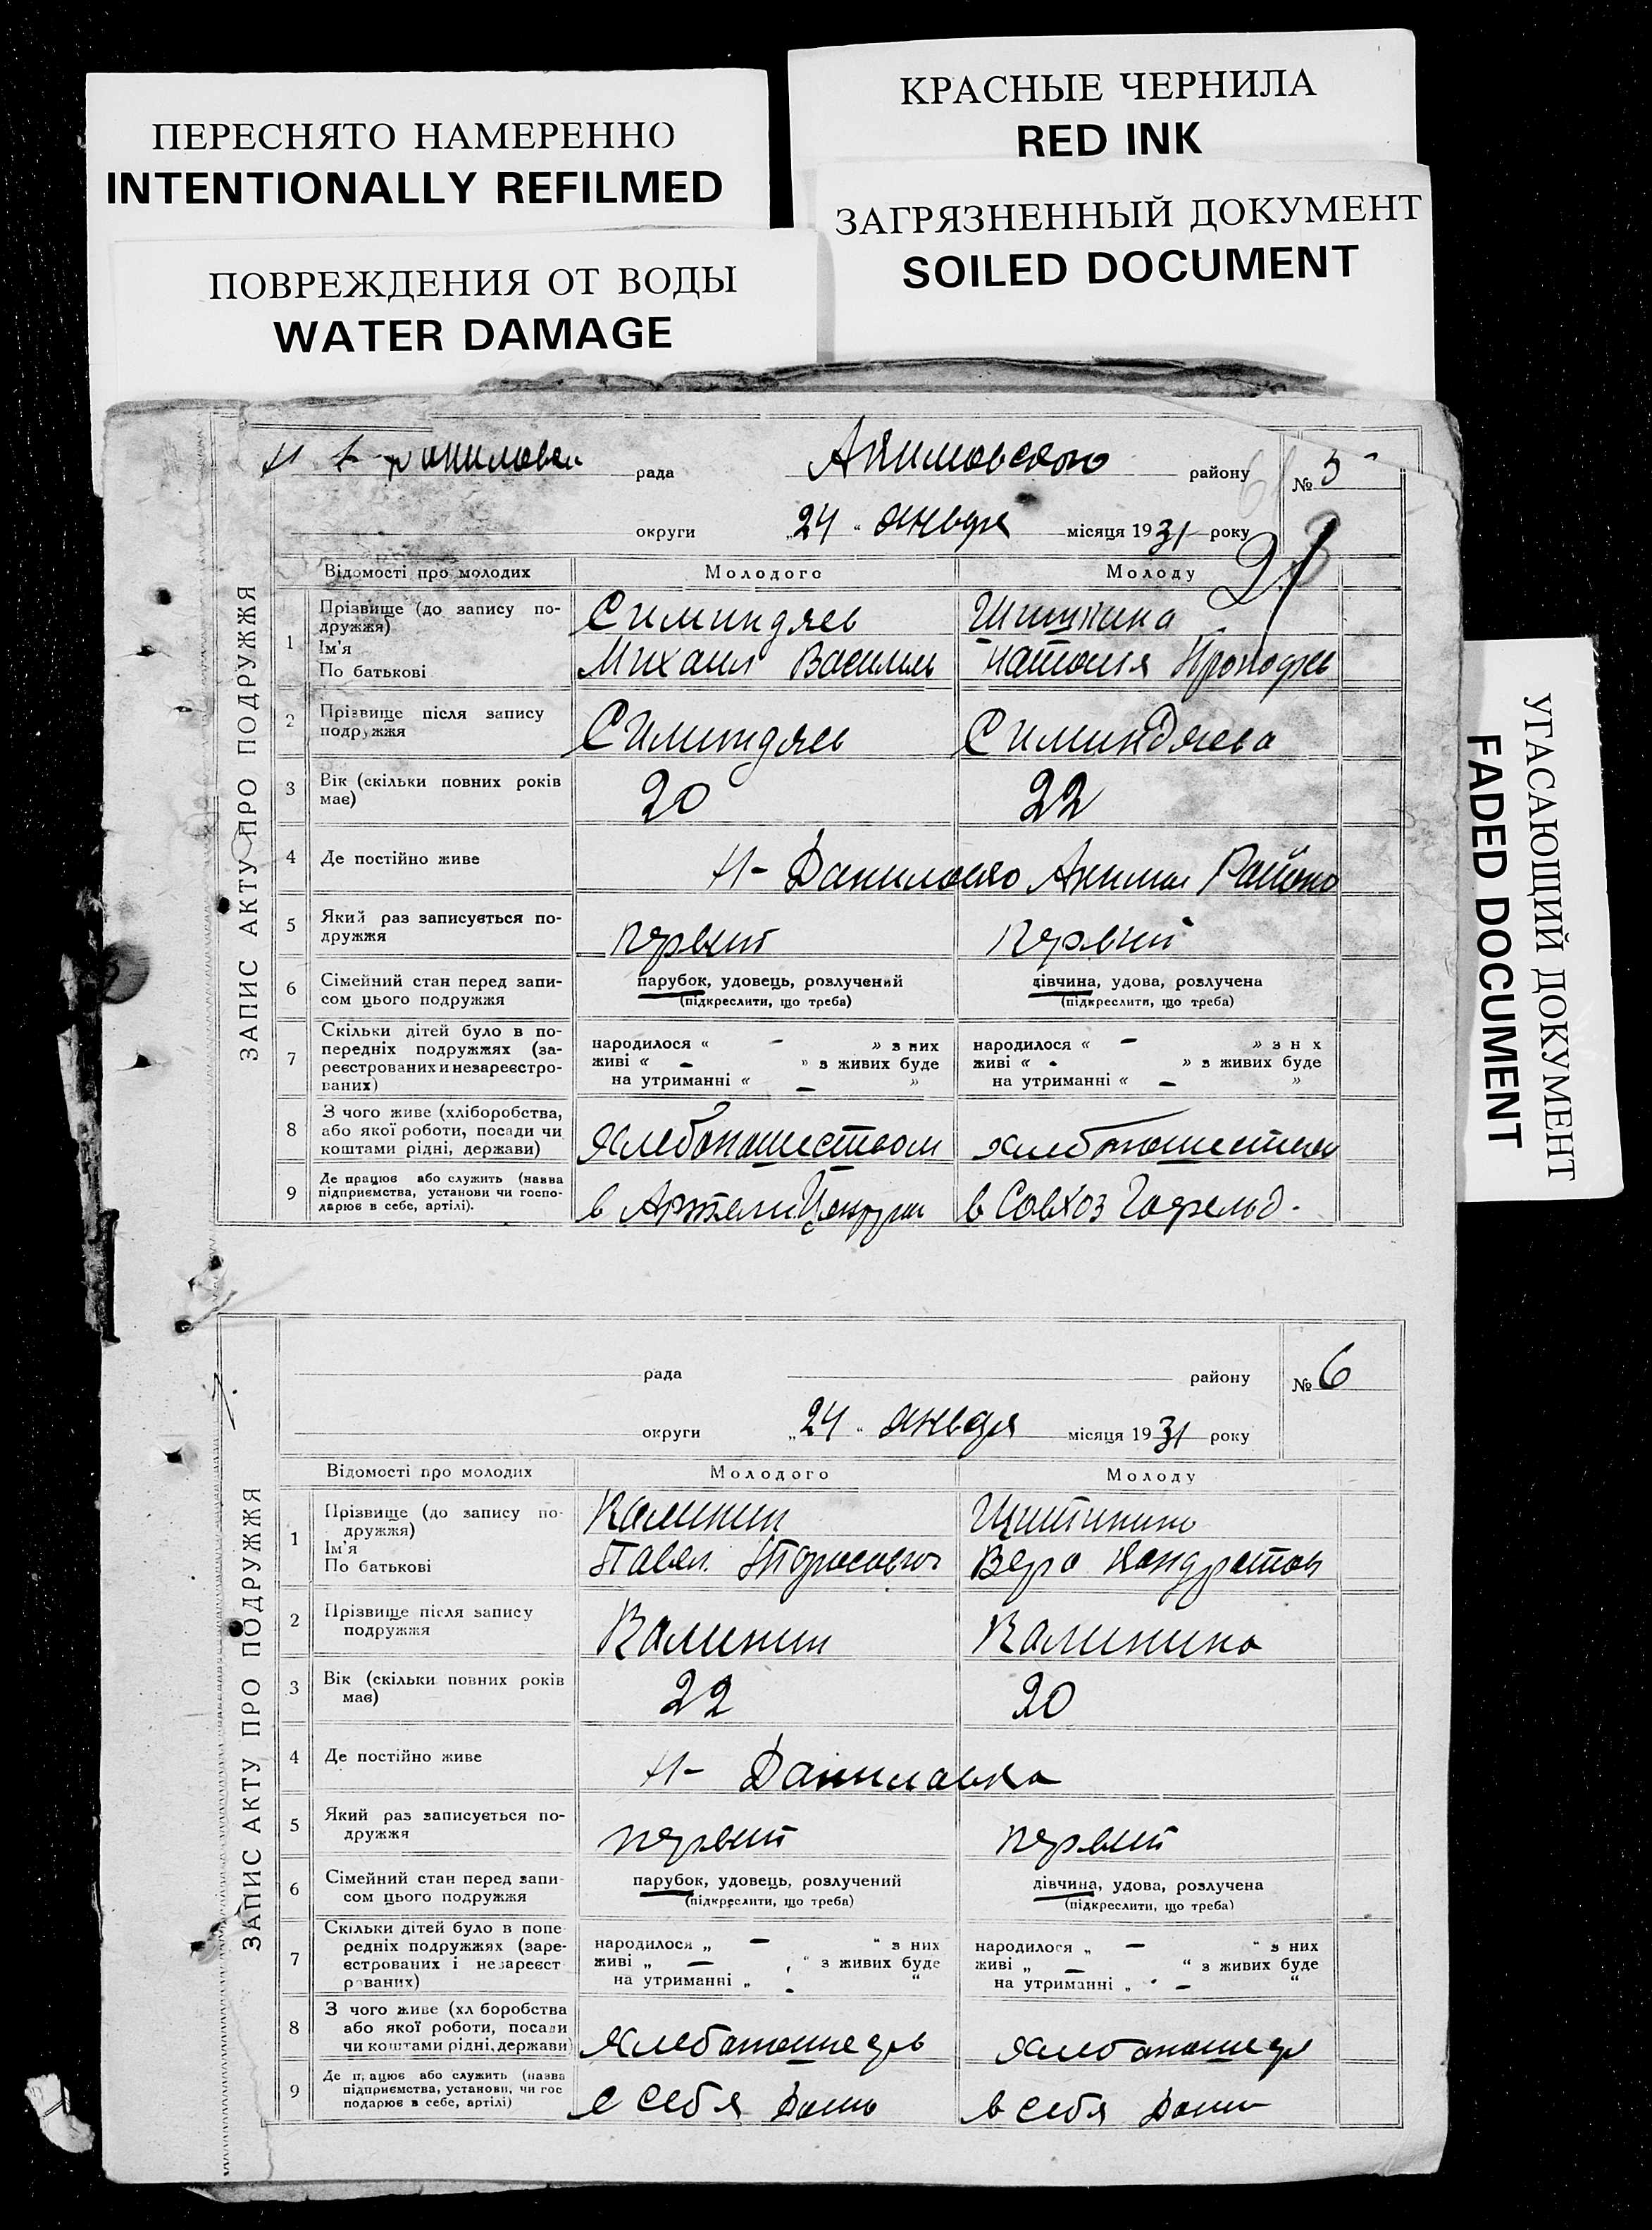 ПЕРЕСНЯТО НАМЕРЕННО
INTENTIONALLY REFILMED
КРАСНЫЕ ЧЕРНИЛА
RED INK
ЗАГРЯЗНЕННЫЙ ДОКУМЕНТ
SOILED DOCUMENT
ПОВРЕЖДЕНИЯ ОТ ВОДЫ
WATER DAMAGE
УГАСАЮЩИЙ ДОКУМЕНТ
FADED DOCUMENT
ЗАПИС АКТУ ПРО ПОДРУЖЖЯ
рада Акимовского району № 5
округи „24“ января місяця 1931 року
21
Відомості про молодих Молодого Молоду
1 Прізвище (до запису по-
дружжя) Симиндяев
Ім'я
По батькові Михаил Василь
2 Прізвище після запису
подружжя Симиндяев Симиндяева
3 Вік (скільки повних років
має) 20 22
4 Де постійно живе Н- Данилово Аким Району
5 Який раз записується по-
дружжя первый первый
6 Сімейний стан перед запи-
сом цього подружжя
парубок, удовець, розлучений дівчина, удова, розлучена
(підкреслити, що треба) (підкреслити, що треба)
7 Скільки дітей було в по-
передніх подружжях (за-
реєстрованих и незареєстро-
ваних)
народилося « – » з них народилося « – » з н х
живі « – » з живих буде живі « - » з живих буде
на утриманні « – » на утриманні « – »
8 З чого живе (хліборобства,
або якої роботи, посади чи
коштами рідні, держави) Хлебопашеством хлебопашеством
9 Де працює або служить (назва
підприємства, установи чи госпо-
дарює в себе, артілі). в Артели в Совхоз
ЗАПИС АКТУ ПРО ПОДРУЖЖЯ
рада району № 6
округи „24“ января місяця 1931 року
Відомості про молодих Молодого Молоду
1 Прізвище (до запису по-
дружжя) Калинин
Ім'я
По батькові Павел Тарасович Вера Кондратов
2 Прізвище після запису
подружжя Калинин Калинина
3 Вік (скільки повних років
має) 22 20
4 Де постійно живе Н- Даниловка
5 Який раз записується по-
дружжя первый первый
6 Сімейний стан перед запи-
сом цього подружжя
парубок, удовець, розлучений дівчина, удова, розлучена
(підкреслити, що треба) (підкреслити, що треба)
7 Скільки дітей було в попе
редніх подружжях (заре-
єстрованих і незареєст
рованих)
народилося „ – “ з них народилося „ – “ з них
живі „ – “ з живих буде живі „ – “ з живих буде
на утриманні „ - “ на утриманні „ – “
8 З чого живе (хл боробства
або якої роботи, посади
чи коштами рідні, держави)
9 Де працює або служить (назва
підприємства, установи, чи гос
подарює в себе, артілі) в себя дома в себя дома